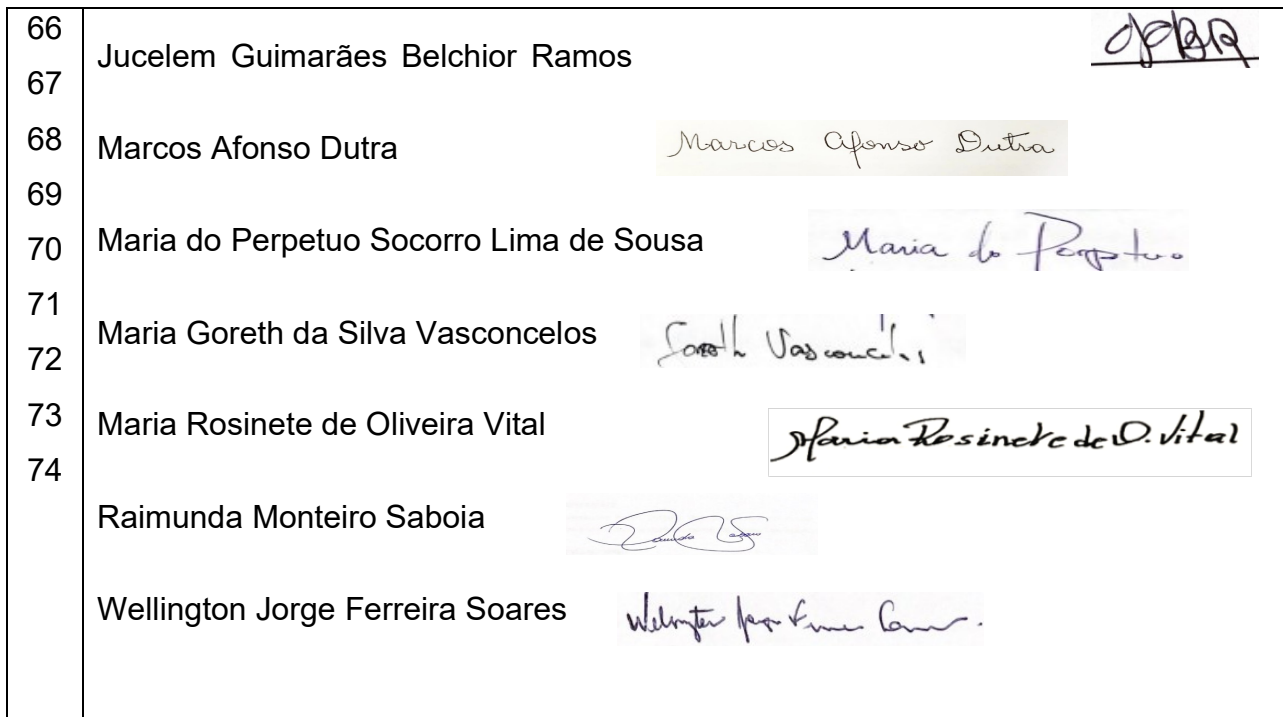 66
Jucelem Guimarães Belchior Ramos
67
68
Marcos Afonso Dutra Marcos Afonso Dutra
69
70
Maria do Perpetuo Socorro Lima de Sousa Maria do Perpetuo
71
Maria Goreth da Silva Vasconcelos Goreth Vasconcelos
72
73
Maria Rosinete de Oliveira Vital Maria Rosinete de O. Vital
74
Raimunda Monteiro Saboia
Wellington Jorge Ferreira Soares